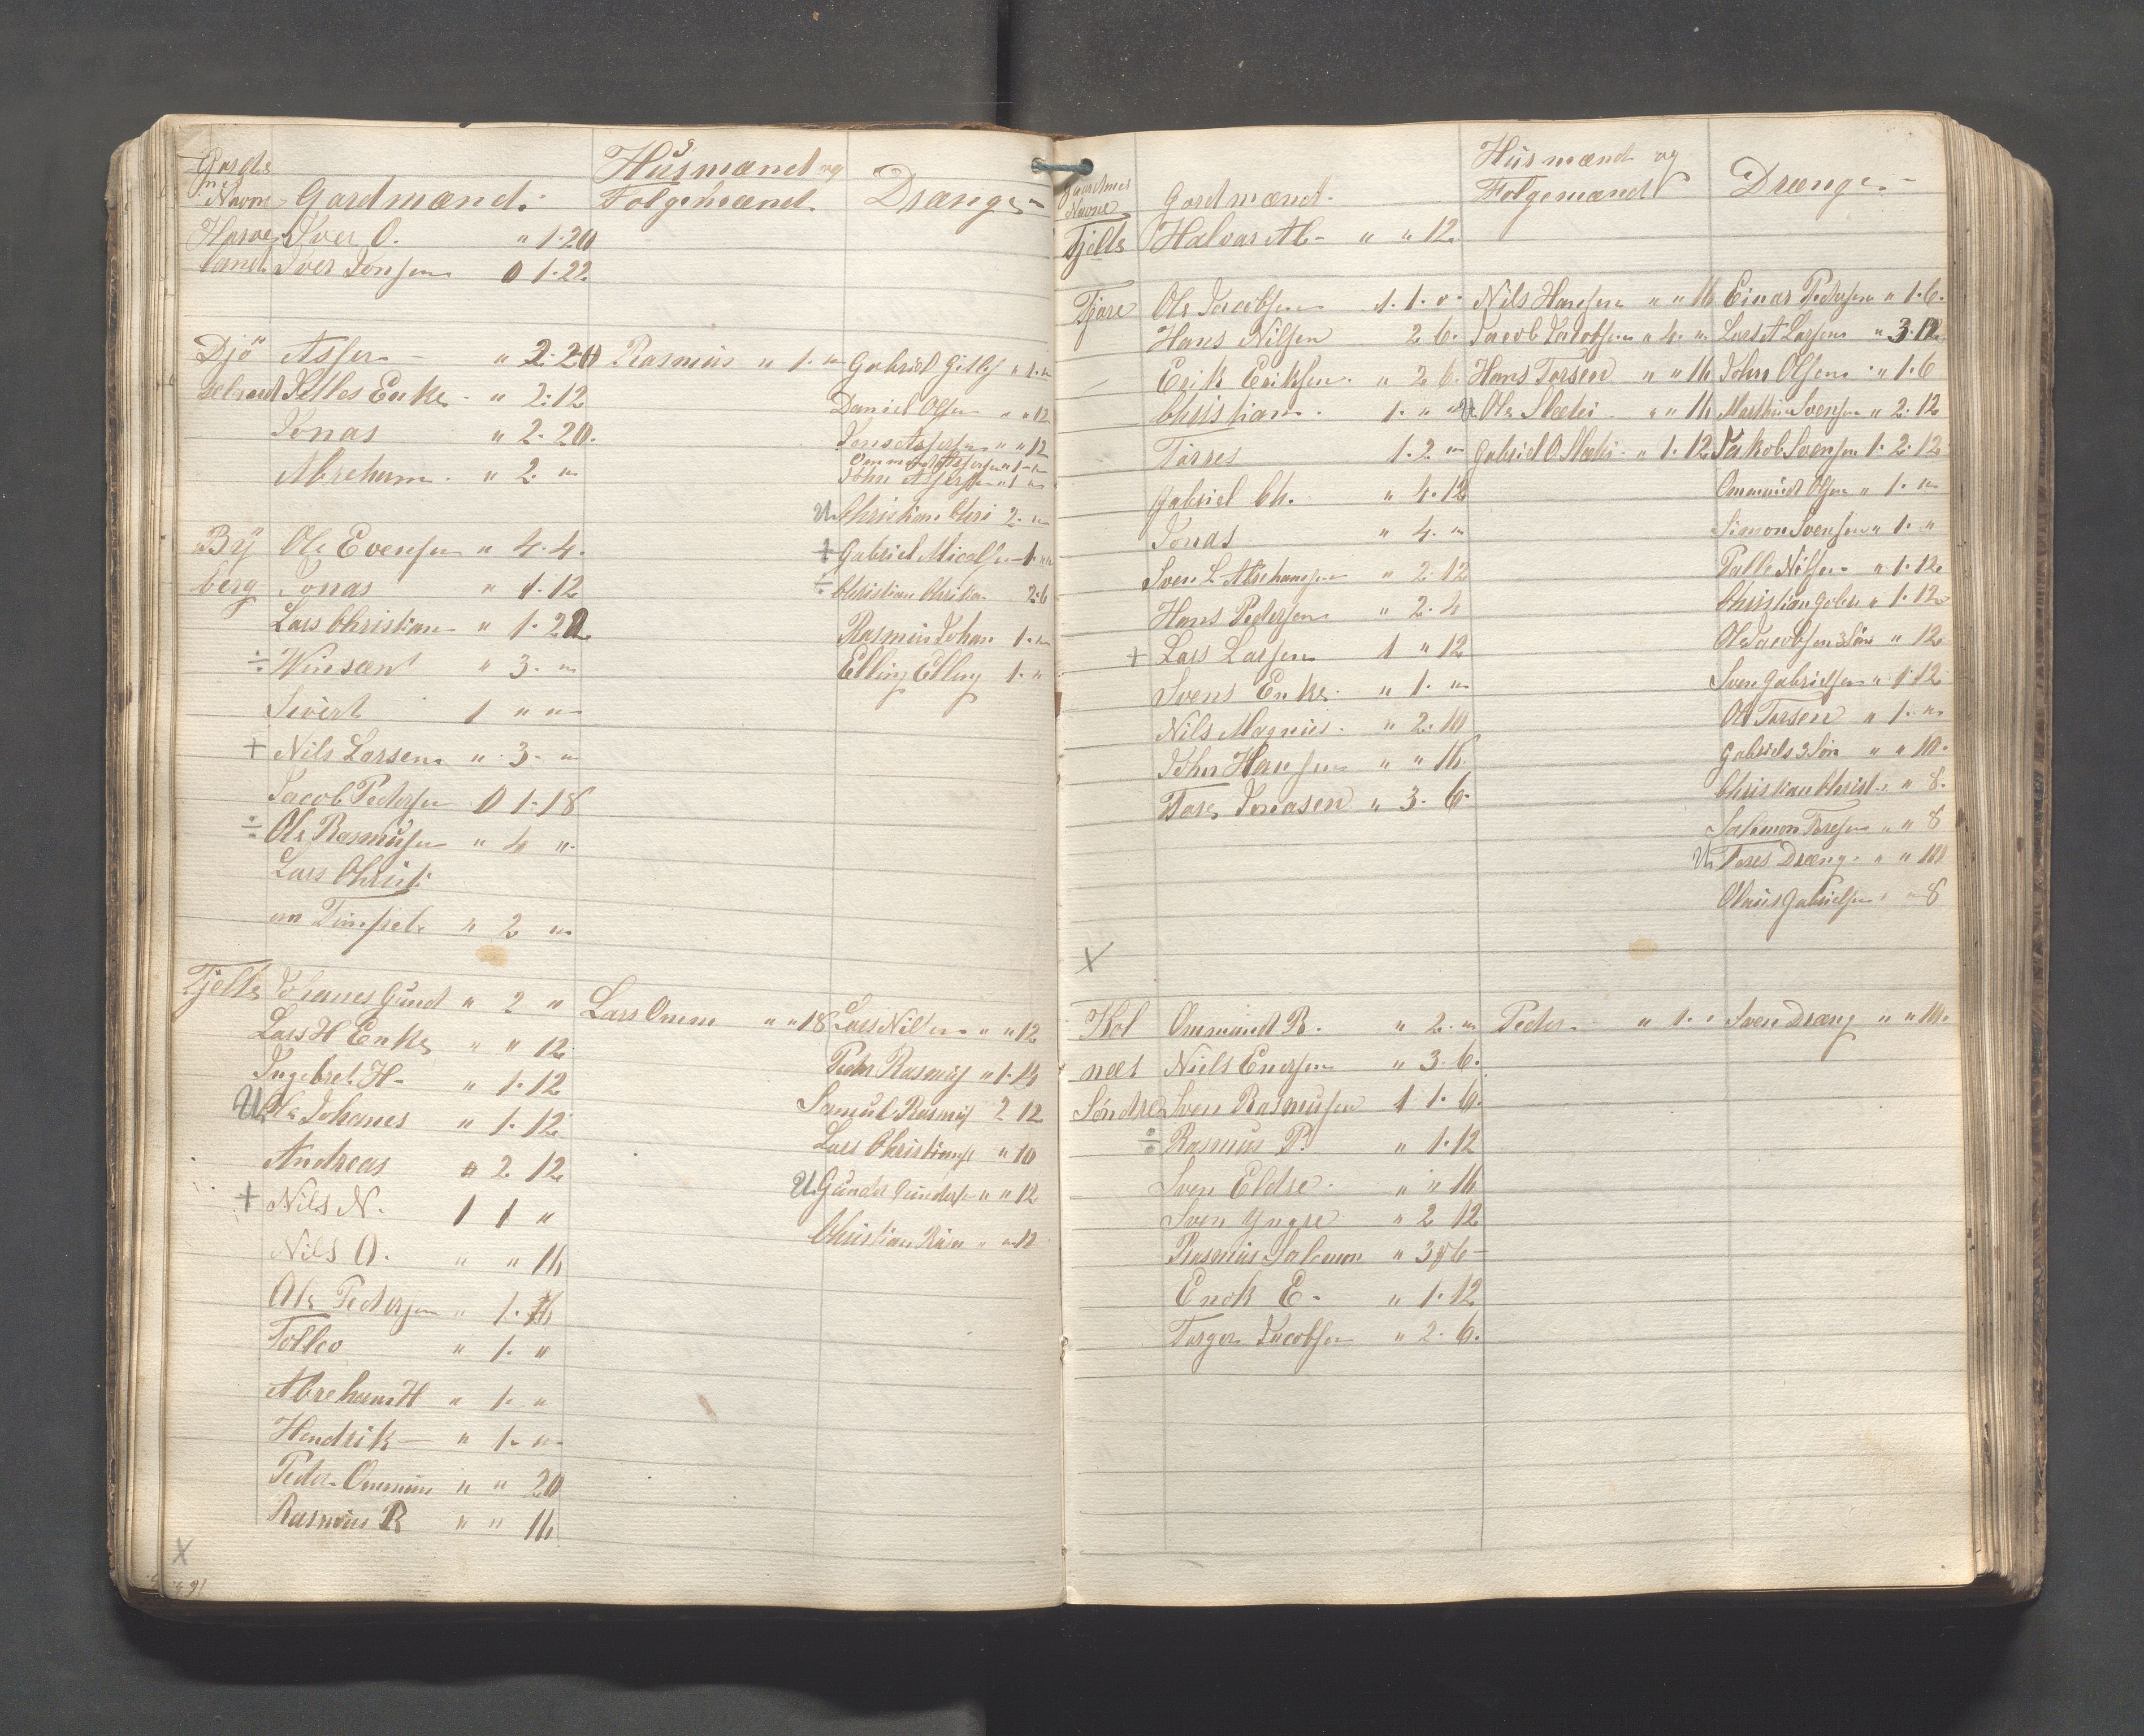 Gaards Navne Gardmænd. Husmænd og Folgemænd Drænge
Iver O. " 1.20
Iver Jonsen 0 1.22
Djö Asser " 2.20 Rasmus " 1. "
Gabriel " 1. "
Enke " 2.12
Daniel Olsen " " 12
Jonas " 2.20.
" " 12
Abreham " 2. "
John " 1 "
Christian Chri 2. "
By Ole Evensen " 4.4.
+ Gabriel 1. "
berg Jonas " 1.12
÷ Christian Christian 2.6
Lars Christian " 1.22
Rasmus Johan 1. "
÷ Winsænt " 3. "
Elling Elling 1. "
Sivert 1 " "
+ Nils Larsen " 3. "
Jacob Pedersen 0 1.18
÷ Ole Rasmusen " 4 "
Lars Christi
an " 2 "
Tjelte Johanes Gund " 2 " Lars Omm " " 18 Lars Nil " " 12
Lars H Enke " " 12
Peder Rasmus " 1.
Ingebret H " 1.12
Samuel Rasmus 2 12
U Ole Johanes " 1.12
Lars Christians " 10
Andreas " 2 12
U Gunder Gunders " " 12
+ Nils N. 1 1 "
Christian Rasm " " 12
Nils O. " " 16
Ole Pedersen " 1.16
Tollev " 1. "
Abreham H " 1. "
Hendrik " 1. "
Peder Ommun " " 20
Rasmus R " " 16
X
Gaardenes Navne Gardmænd. Husmænd og Folgemænd Drænge
Tjelte Halvar Ab " " 12
Tjore Ole Jacobsen 1. 1. 0. Nils Hansen " " 16 Einar Pedersen " 1.6.
Hans Nilsen 2 6. Jacob Jacobsen " 4. " Lars A Larsen " 3.12
Erik Eriksen " 2 6. Hans Torsen " " 16 John Olsen " 1.6
Christian 1. " " Ole " " 16 Svensen " 2.12
Torres 1.2 " Gabriel O " 1.12 Jakob Svensen 1.2.12
Gabriel Ch. " 4.12
Ommund Olsen " 1. "
Jonas " 4. "
Simon Svensen " 1. "
Sven L Abrehamsen " 2.12
Palle Nilsen " 1.12
Hans Pedersen " 2.
Christian Gabr " 1.12
+ Lars Larsen 1 " 12
Ole Jacobsen 3 Sön " 12
Svens Enke " 1. "
Sven Gabrielsen " 1.12
Nils Magnus " 2.10
Ole Torsen " 1. "
John Hansen " " 16
Gabriels 3 Sön " " 10.
Tore Jonasen " 3. 6.
Christian Christ " 8.
Salemon Toresen " " 8
U Tores Dræng " " 10
Olaus Gabrielsen " 8
X
Kol Ommund B. " 2. " Peder " 1. " Sven Dræng " " 10.
næs Niels Enersen " 3. 6.
Söndre Sven Rasmusen 1 1. 6.
÷ Rasmus P. " 1.12
Sven Eldre " " 16
Sven Yngre " 2 12
Rasmus Salemon " 3 6
Enok E. " 1.12
Torger Jacobsen " 2. 6.